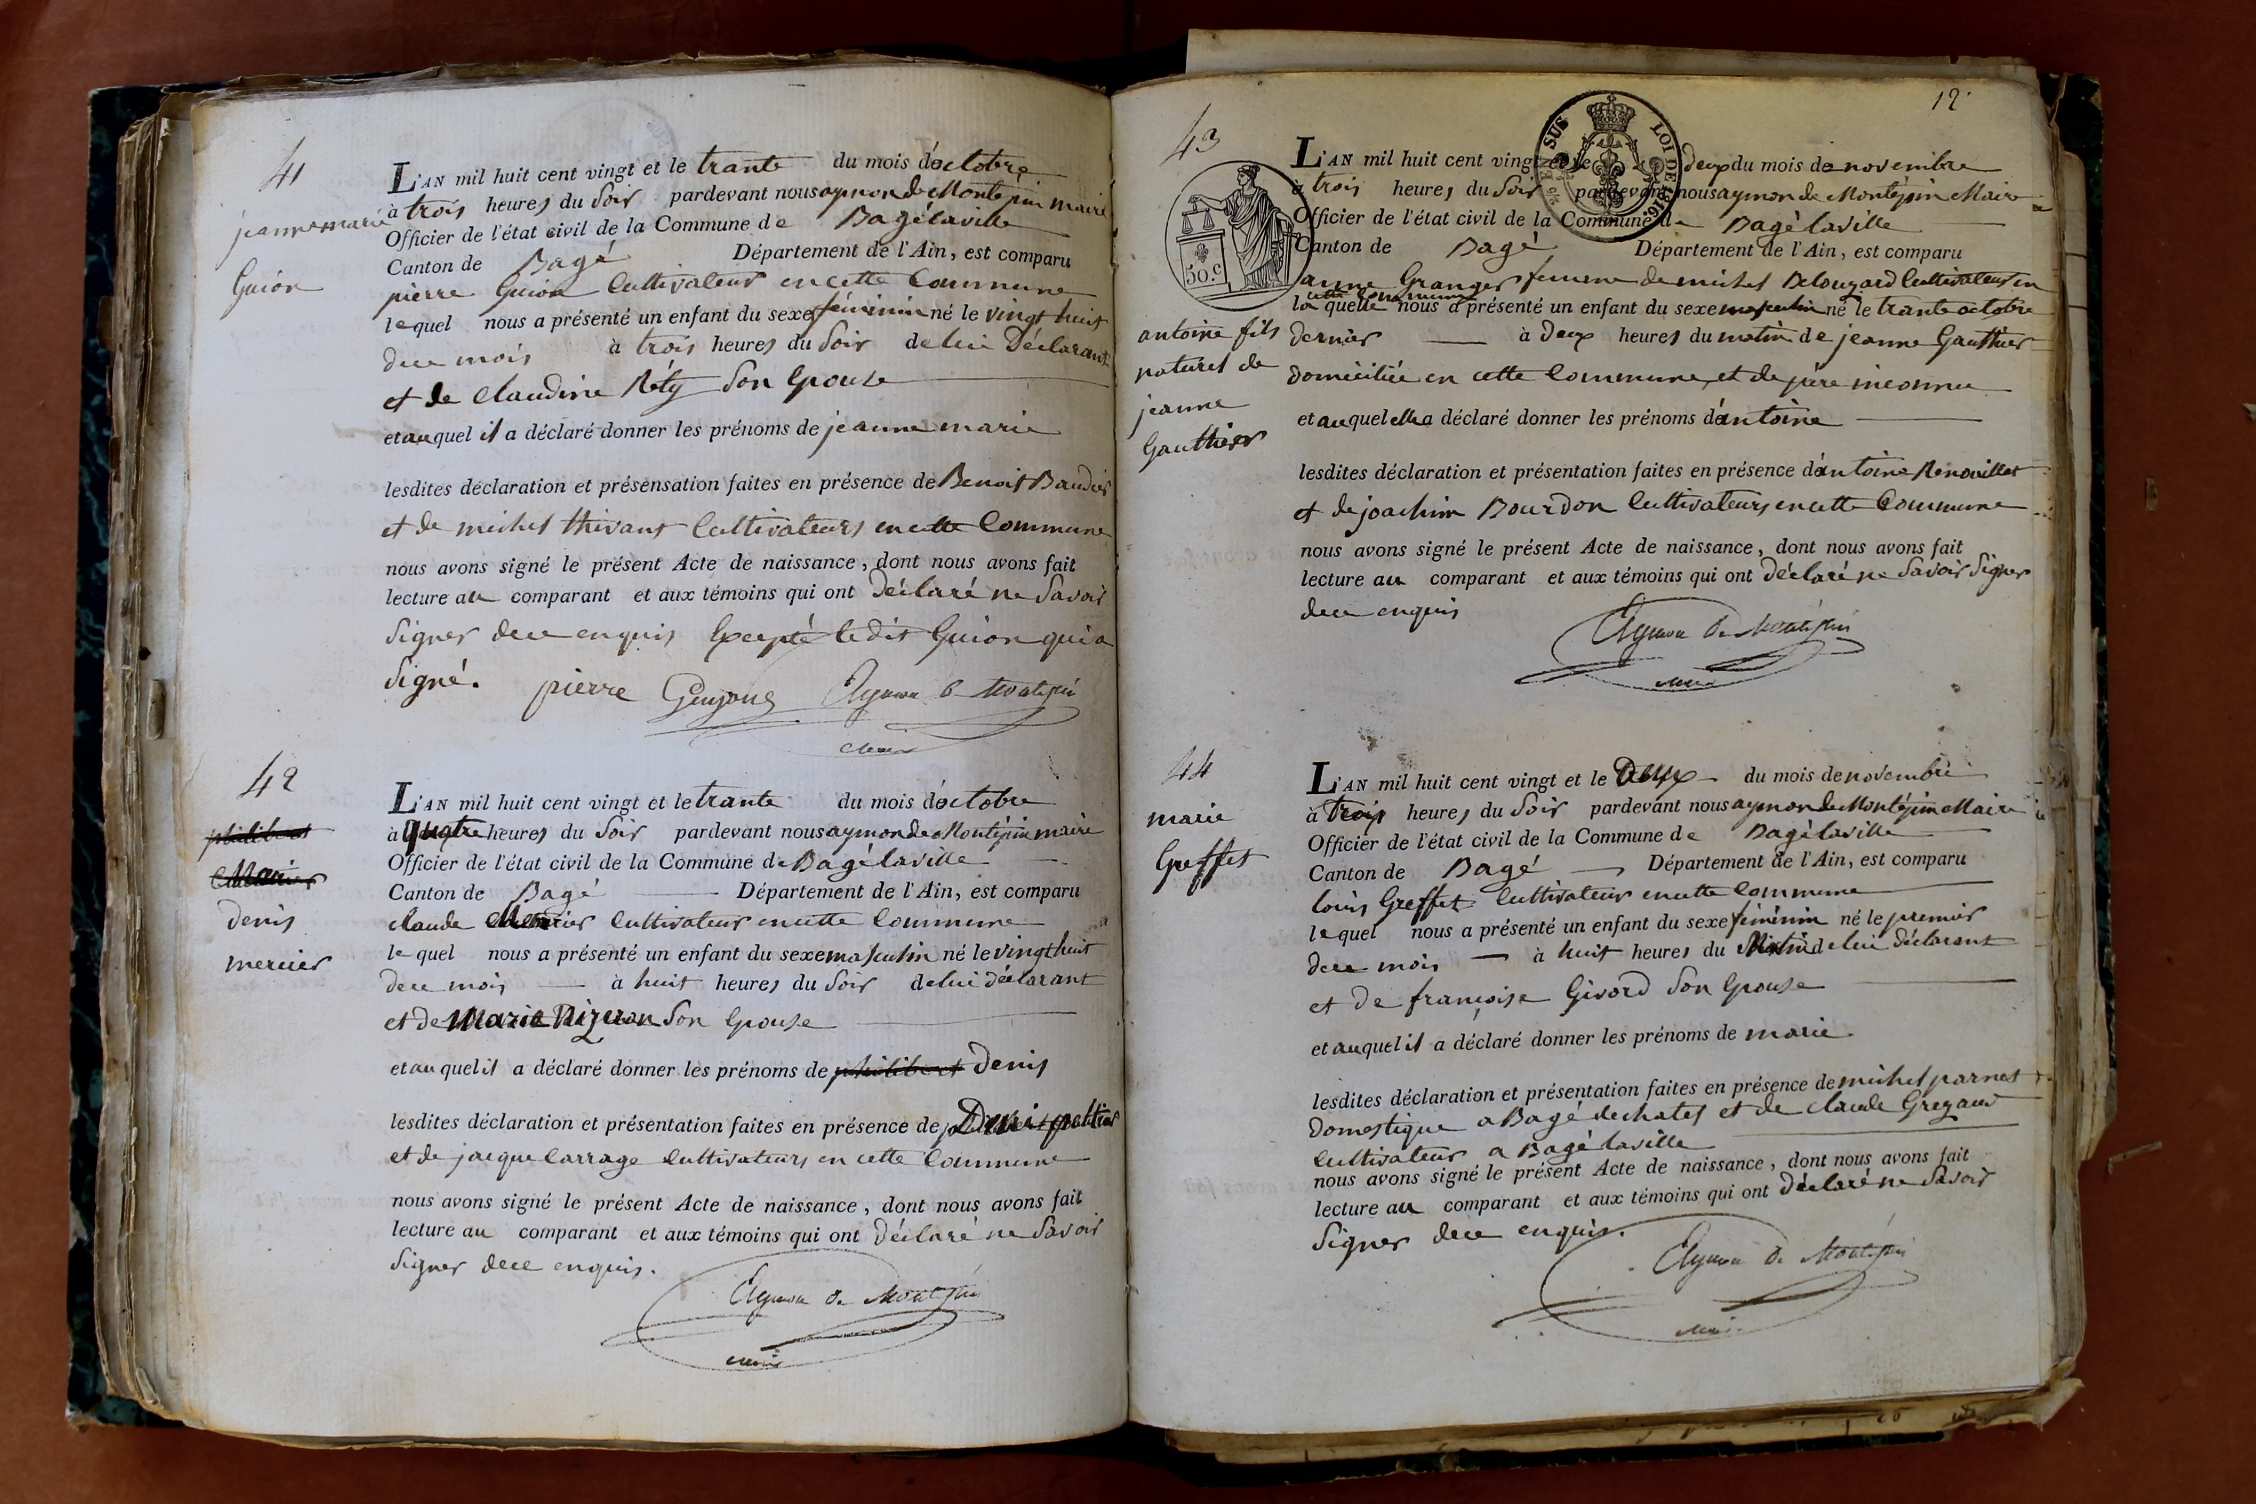 41
jeannemarie
Guion
L'AN mil huit cent vingt et le trante du mois d'octobre
à trois heures du Soir pardevant nous aymon de Montépin maire
Officier de l'état civil de la Commune de Bagélaville
Canton de Bagé Département de l'Ain, est comparu
pierre Guion Cultivateur en cette Commune
lequel nous a présenté un enfant du sexe féminin né le vingt huit
du mois à trois heures du Soir de lui Déclarant
et de Claudine Réty Son Epouse
et auquel il a déclaré donner les prénoms de jeanne marie
lesdites déclaration et présensation faites en présence de Benoit Baudier
et de michel thivant Cultivateurs en cette Commune
nous avons signé le présent Acte de naissance, dont nous avons fait
lecture au comparant et aux témoins qui ont Déclaré ne Savoir
Signer de ce enquis Excepté le dit Guion qui a
Signé. pierre Guyong Aymon de Montépin
maire
42
philibert
Mercier
denis
mercier
L'AN mil huit cent vingt et le trante du mois d'octobre
à quatre heures du Soir pardevant nous aymon de Montépin maire
Officier de l'état civil de la Commune de Bagélaville
Canton de Bagé Département de l'Ain, est comparu
claude Mercier Cultivateur en cette Commune
lequel nous a présenté un enfant du sexe masculin né le vingt huit
de ce mois à huit heures du Soir de lui déclarant
et de Marie Son Epouse
et auquel il a déclaré donner les prénoms de philibert Denis
lesdites déclaration et présentation faites en présence de Denis
et de jacque Carrage Cultivateurs en cette Commune
nous avons signé le présent Acte de naissance, dont nous avons fait
lecture au comparant et aux témoins qui ont Déclaré ne Savoir
Signer de ce enquis.
Aymon de Montépin
maire
12
43
50.c
SUS
LOI DE 1816
antoine fils
naturel de
jeanne
Gauthier
L'AN mil huit cent vingt et le deux du mois de novembre
à trois heures du Soir pardevant nous aymon de Montépin Maire
Officier de l'état civil de la Commune de Bagélaville
Canton de Bagé Département de l'Ain, est comparu
anne Granger femme de michel Delougard Cultivateur en
cette Commune
la quelle nous a présenté un enfant du sexe masculin né le trante octobre
dernier à deux heures du matin de jeanne Gauthier
domiciliée en cette Commune, et de père inconnu
et auquel elle a déclaré donner les prénoms d'antoine
lesdites déclaration et présentation faites en présence d'antoine Renouillet
et de joachim Bourdon Cultivateurs en cette Commune
nous avons signé le présent Acte de naissance, dont nous avons fait
lecture au comparant et aux témoins qui ont Déclaré ne Savoir Signer
de ce enquis
Aymon de Montépin
maire
44
marie
Greffet
L'AN mil huit cent vingt et le Deux du mois de novembre
à trois heures du Soir pardevant nous aymon de Montépin Maire
Officier de l'état civil de la Commune de Bagélaville
Canton de Bagé Département de l'Ain, est comparu
louis Greffet Cultivateur en cette Commune
lequel nous a présenté un enfant du sexe féminin né le premier
de ce mois à huit heures du Matin de lui déclarant
et de françoise Givord Son Epouse
et auquel il a déclaré donner les prénoms de marie
lesdites déclaration et présentation faites en présence de michel parnet
Domestique a Bagé lechatel et de claude Gregaud
Cultivateur a Bagélaville
nous avons signé le présent Acte de naissance, dont nous avons fait
lecture au comparant et aux témoins qui ont Déclaré ne Savoir
Signer de ce enquis.
Aymon de Montépin
maire